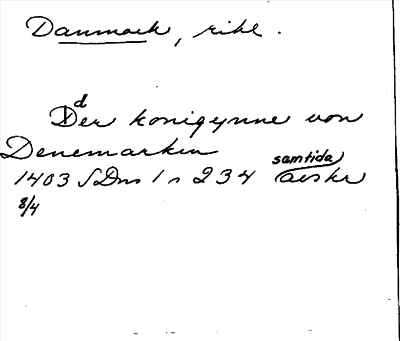 Danmark, rike.
d
Der konigynne von
Denemarken
samtida
1403 SDns 1 n 234 avskr
8/4